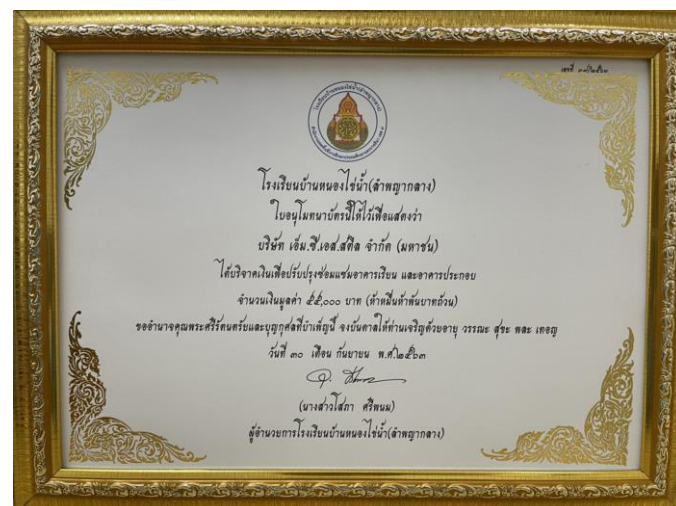 โรงเรียนบ้านหนองไข่น้ำ(ลำพญากลาง)
ใบอนุโมทนาบัตรนี้ให้ไว้เพื่อแสดงว่า
บริษัท เอ็ม.ซี.เอส.สตีล จำกัด (มหาชน)
ได้บริจาคเงินเพื่อปรับปรุงซ่อมแซมอาคารเรียน และอาคารประกอบ
จำนวนเงินมูลค่า ๕๕,๐๐๐ บาท (ห้าหมื่นห้าพันบาทถ้วน)
ขออำนาจคุณพระศรีรัตนตรัยและบุญกุศลที่บำเพ็ญนี้ จงบันดาลให้ท่านเจริญด้วยอายุ วรรณะ สุขะ พละ เทอญ
วันที่ ๓๐ เดือน กันยายน พ.ศ.๒๕๖๓
(นางสาวโสภา ศรีพนม)
ผู้อำนวยการโรงเรียนบ้านหนองไข่น้ำ(ลำพญากลาง)